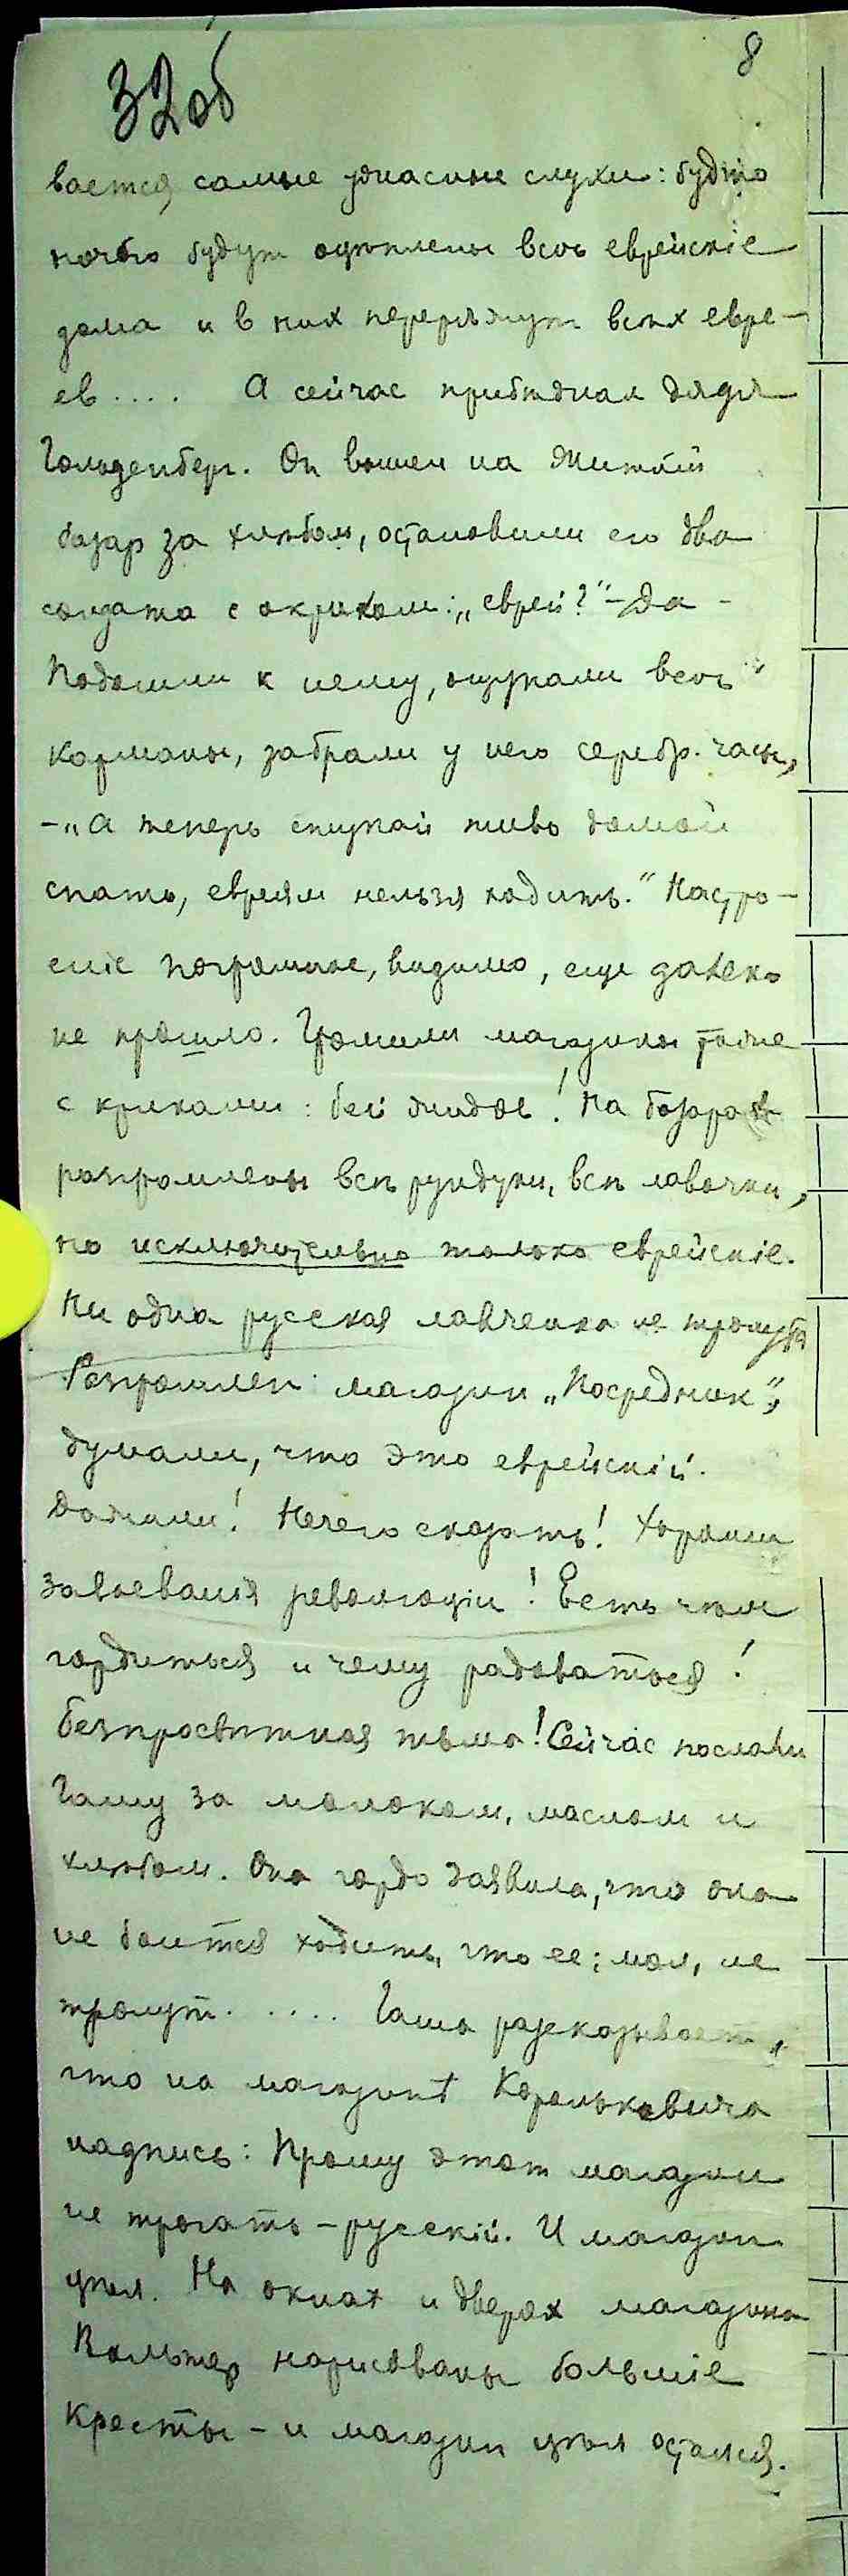 32об
8
вается самые ужасные слухи: будто
ночью будут оцѣплены всѣ еврейскіе
дома и в них перерѣжут всѣх евре-
ев.... А сейчас прибѣжал дядя
Гольденберг. Он вышел на Житній
базар за хлѣбом, остановили его два
солдата с окриком: „еврей?" – Да –
Подошли к нему, ощупали всѣ
карманы, забрали у него серебр. часы,
– „А теперь ступай живо домой
спать, евреям нельзя ходить." Настро-
еніе погромное, видимо, еще далеко
не прошло. Громили магазины тоже
с криками: бей жидов! На базарах
разгромлены всѣ рундуки, всѣ лавочки,
но исключительно только еврейскіе.
Ни одна русская лавченка не тронута
Разгромлен магазин „Посредник",
думали, что это еврейскій.
Дожили! Нечего сказать! Хороши
завоеванія революціи! Есть чѣм
гордиться и чему радоваться!
Безпросвѣтная тьма! Сейчас послали
Гашу за молоком, маслом и
хлѣбом. Она гордо заявила, что она
не боится ходить, что ее, мол, не
тронут..... Гаша разсказывает,
что на магазинѣ Корольковича
надпись: Прошу этот магазин
не трогать – русскій. И магазин
цѣл. На окнах и дверях магазина
Вальтер нарисованы большіе
кресты – и магазин цѣл остался.